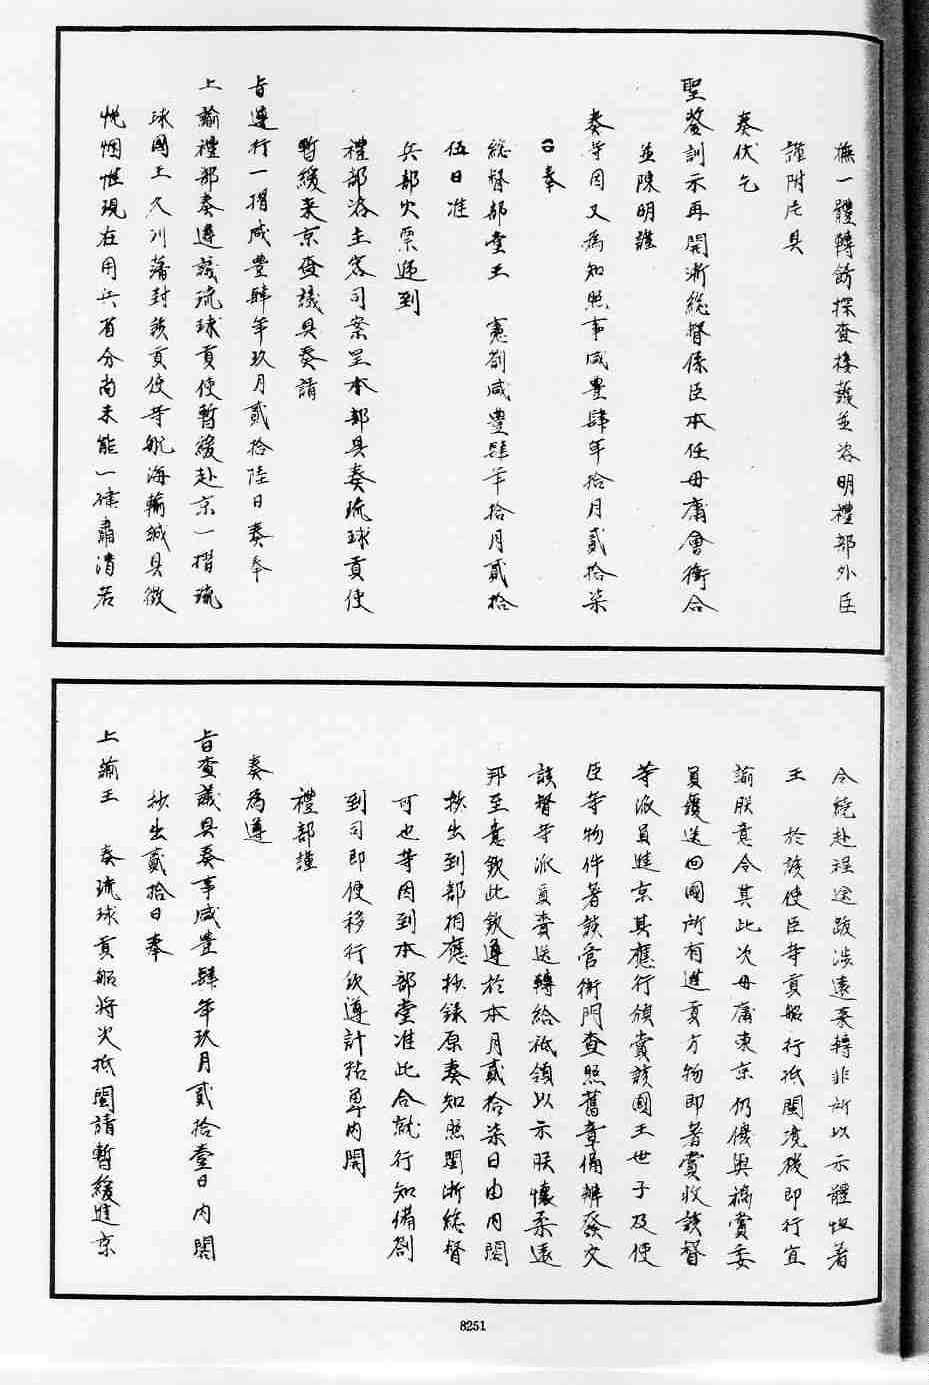 撫一體轉飭探查接護並咨明禮部外臣
謹附片具
奏伏乞
聖鑒訓示再閩浙總督係臣本任毋庸會銜合
並陳明謹
奏等因又為知照事咸豐肆年拾月貳拾柒
日奉
總督部堂王 憲劄咸豐肆年拾月貳拾
伍日准
兵部火票遞到
禮部咨主客司案呈本部具奏琉球貢使
暫緩來京查議具奏請
旨遵行一摺咸豐肆年玖月貳拾陸日奏奉
上諭禮部奏遵議琉球貢使暫緩赴京一摺琉
球國王久列藩封該貢使等航海輸誠具徵
悃忱惟現在用兵省分尚未能一律肅清若
令繞赴程途跋涉遠來轉非所以示體恤著
王 於該使臣等貢船行抵閩境後即行宣
諭朕意令其此次毋庸來京仍優與犒賞委
員護送回國所有進貢方物即著賞收該督
等派員進京其應行頒賞該國王世子及使
臣等物件著該衙門查照舊章備辦發交
該督等派員賚送轉給祗領以示朕懷柔遠
邦至意欽此欽遵於本月貳拾柒日由內閣
抄出到部相應抄錄原奏知照閩浙總督
可也等因到本部堂准此合就行知備劄
到司即便移行欽遵計粘單內開
禮部謹
奏為遵
旨查議具奏事咸豐肆年玖月貳拾壹日內閣
抄出貳拾日奉
上諭王 奏琉球貢船將次抵閩請暫緩進京
8251